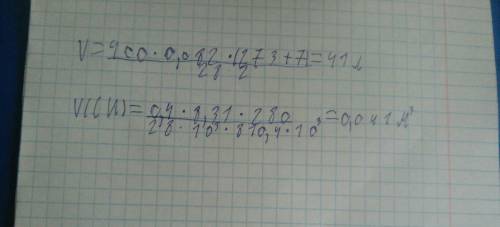 V = 400 · 0,082 · (273 + 7) / 28 · 2 = 41 л
V(СИ) = 0,4 · 8,31 · 280 / 28 · 10³ · 810,4 · 10³ = 0,041 м³